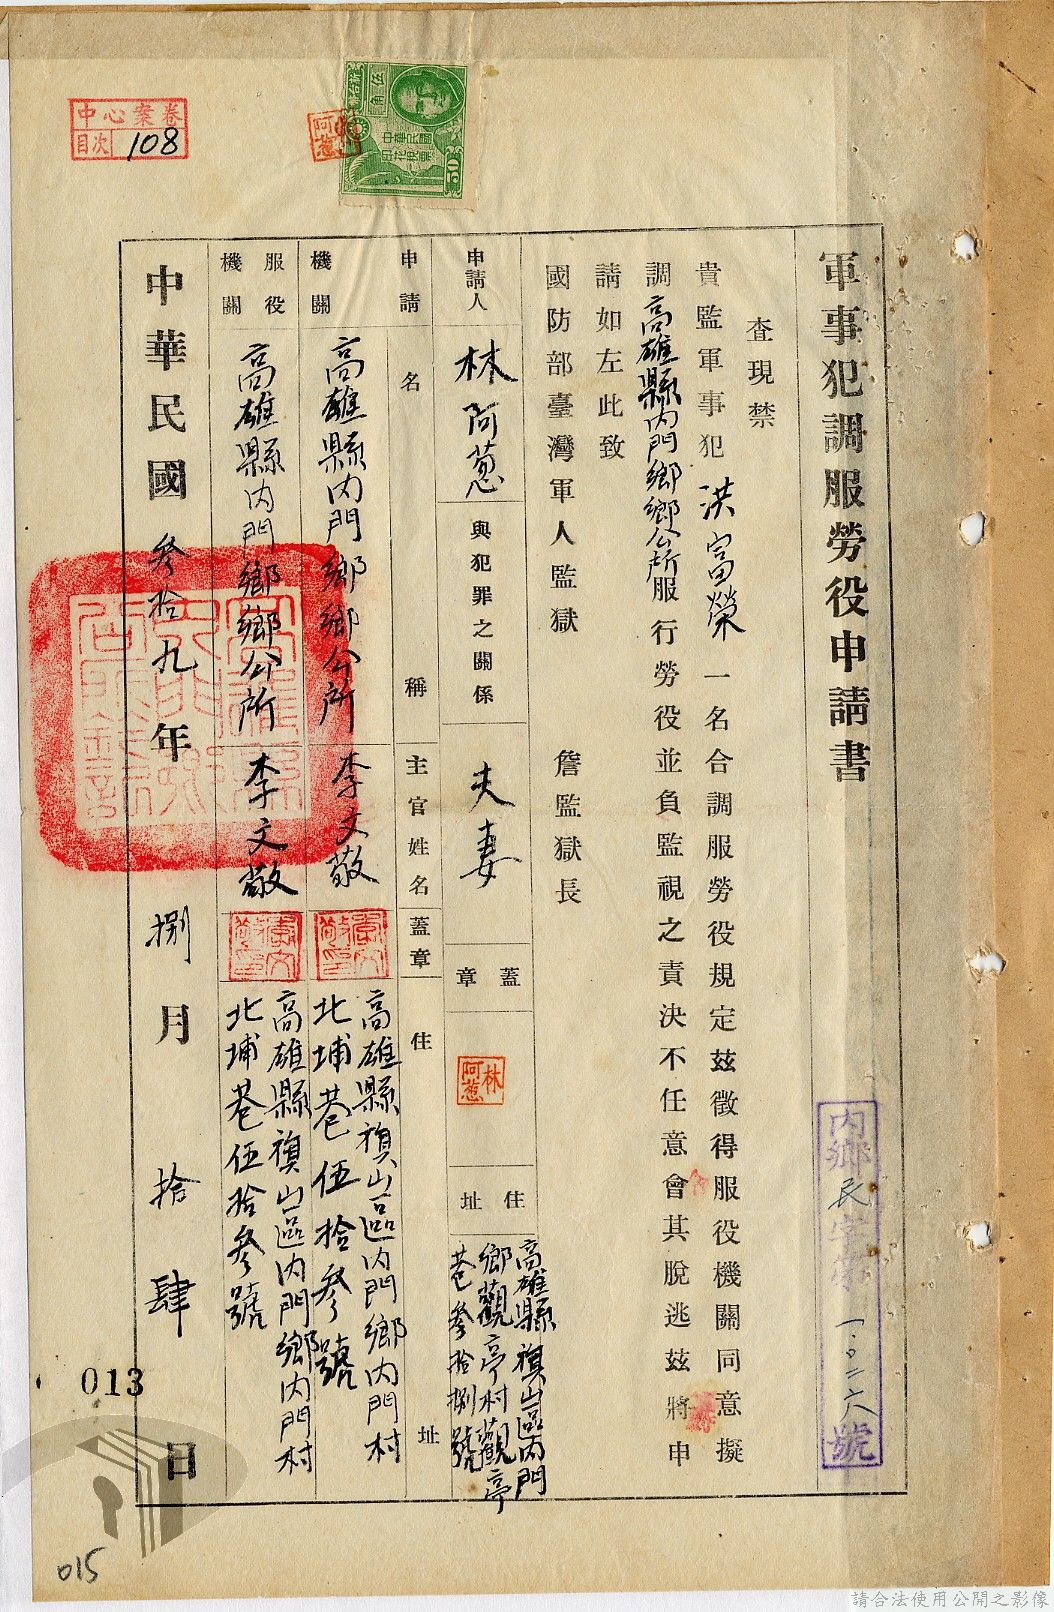 中心案卷
目次 108
伍角
中華民國
印花稅票
50
阿葱
軍事犯調服勞役申請書
查現禁
貴監軍事犯洪富榮一名合調服勞役規定茲徵得服役機關同意擬
調高雄縣內門鄉鄉公所服行勞役並負監視之責決不任意會其脫逃茲將申
請如左此致
國防部臺灣軍人監獄 詹監獄長
申請人 林阿葱 與犯罪之關係 夫妻 蓋章 林阿葱 住址 高雄縣旗山區內門鄉觀亭村觀亭巷參拾捌號
名稱 主官姓名 蓋章 住址
申請機關 高雄縣內門鄉鄉公所 李文敬 高雄縣旗山區內門鄉內門村北埔巷伍拾參號
服役機關 高雄縣內門鄉鄉公所 李文敬 高雄縣旗山區內門鄉內門村北埔巷伍拾參號
中華民國參拾九年捌月拾肆日
內鄉民字第一〇二六號
013
015
請合法使用公開之影像